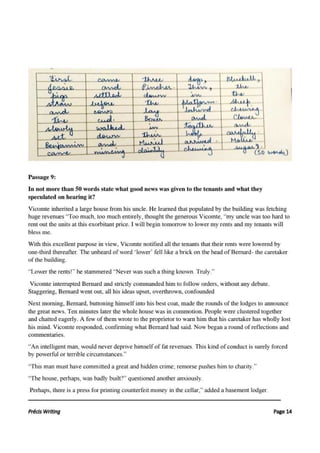 First came three dogs, Bluebell,
Jessie and Pincher. Then, the
pigs settled down in the
straw before the platform. Sheep
and cows lay behind chewing
the cud. Boxer and Clover
slowly walked in together and
set down their hoofs carefully.
Benjamin and Muriel arrived. Mollie
came mincing daintily chewing sugar. (50 words)
Passage 9:
In not more than 50 words state what good news was given to the tenants and what they
speculated on hearing it?
Viconte inherited a large house from his uncle. He learned that populated by the building was fetching
huge revenues “Too much, too much entirely, thought the generous Vicomte, “my uncle was too hard to
rent out the units at this exorbitant price. I will begin tomorrow to lower my rents and my tenants will
bless me.
With this excellent purpose in view, Vicomte notified all the tenants that their rents were lowered by
one-third thereafter. The unheard of word ‘lower’ fell like a brick on the head of Bernard- the caretaker
of the building.
“Lower the rents!” he stammered “Never was such a thing known. Truly.”
Vicomte interrupted Bernard and strictly commanded him to follow orders, without any debate.
Staggering, Bernard went out, all his ideas upset, overthrown, confounded
Next morning, Bernard, buttoning himself into his best coat, made the rounds of the lodges to announce
the great news. Ten minutes later the whole house was in commotion. People were clustered together
and chatted eagerly. A few of them wrote to the proprietor to warn him that his caretaker has wholly lost
his mind. Vicomte responded, confirming what Bernard had said. Now began a round of reflections and
commentaries.
“An intelligent man, would never deprive himself of fat revenues. This kind of conduct is surely forced
by powerful or terrible circumstances.”
“This man must have committed a great and hidden crime; remorse pushes him to charity.”
“The house, perhaps, was badly built?” questioned another anxiously.
Perhaps, there is a press for printing counterfeit money in the cellar,” added a basement lodger.
Précis Writing Page 14